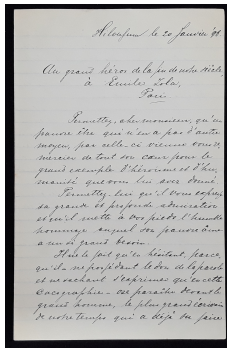 le 20 Janvier 98
Au grand héros de la fin de notre siècle,
à Emile Zola,
Paris
Permettez, cher monsieur, qu'un
pauvre être qui n'en a pas d'autre
moyen, par celle-ci vienne vous re-
mercier de tout son cœur pour le
grand exemple d'héroïsme et d'hu-
manité que vous lui avez donné.
Permettez-lui qu'il vous exprime
sa grande et profonde admiration
et qu'il mette à vos pieds l'humble
hommage auquel son pauvre âme
a un si grand besoin.
Il ne le fait qu'en hésitant, parce
qu'il ne possédant le don de la parole
et ne sachant s'exprimer qu'en cette
Cacographie - ose paraître devant le
grand homme, le plus grand écrivain
de notre temps qui a déjà dû faire